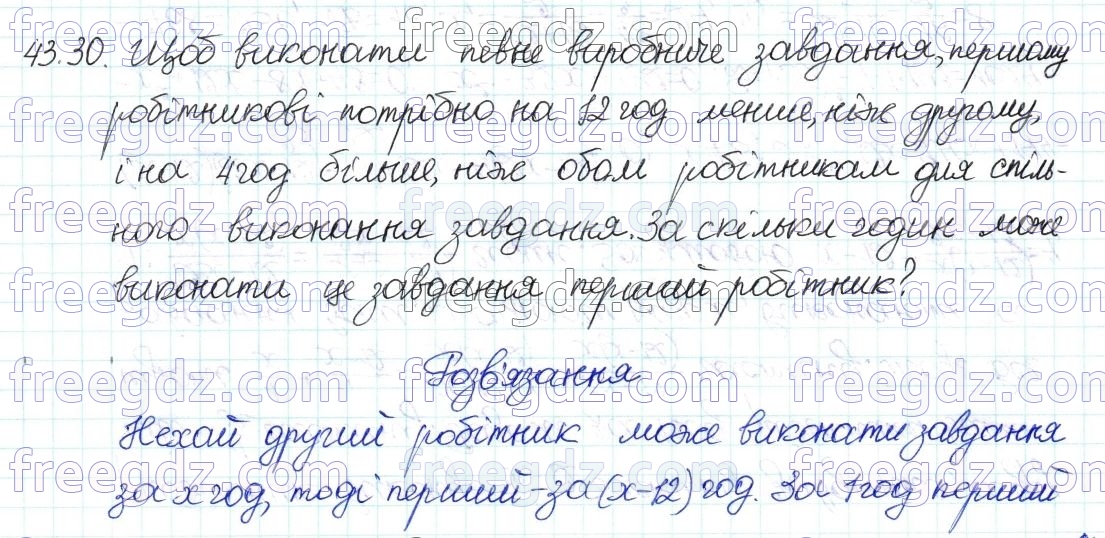 43.30. Щоб виконати певне виробниче завдання, першому
робітникові потрібно на 12 год менше, ніж другому,
і на 4 год більше, ніж обом робітникам для спіль-
ного виконання завдання. За скільки годин може
виконати це завдання перший робітник?
Розв'язання
Нехай другий робітник може виконати завдання
за x год, тоді перший - за (x-12) год. За 1 год перший